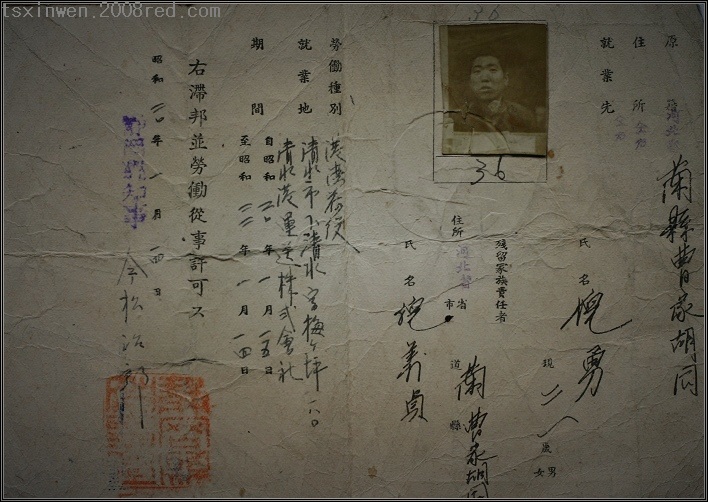 tsxinwen.2008red.com
36
36
原
蘭縣曹家胡同
住所 仝右
就業先 仝右
氏名 倪勇
現二一歳 男女
残留家族責任者
住所 河北省 市 道 蘭縣曹家胡同
氏名 倪義貞
勞働種別 港湾荷役
就業地 清水市下清水字梅ヶ坪一八〇
清水港運送株式會社
期間 自昭和二〇年一月一五日
至昭和二二年一月一四日
右滯邦並勞働從事許可ス
昭和二〇年一月一四日
靜岡縣知事 今松治郎